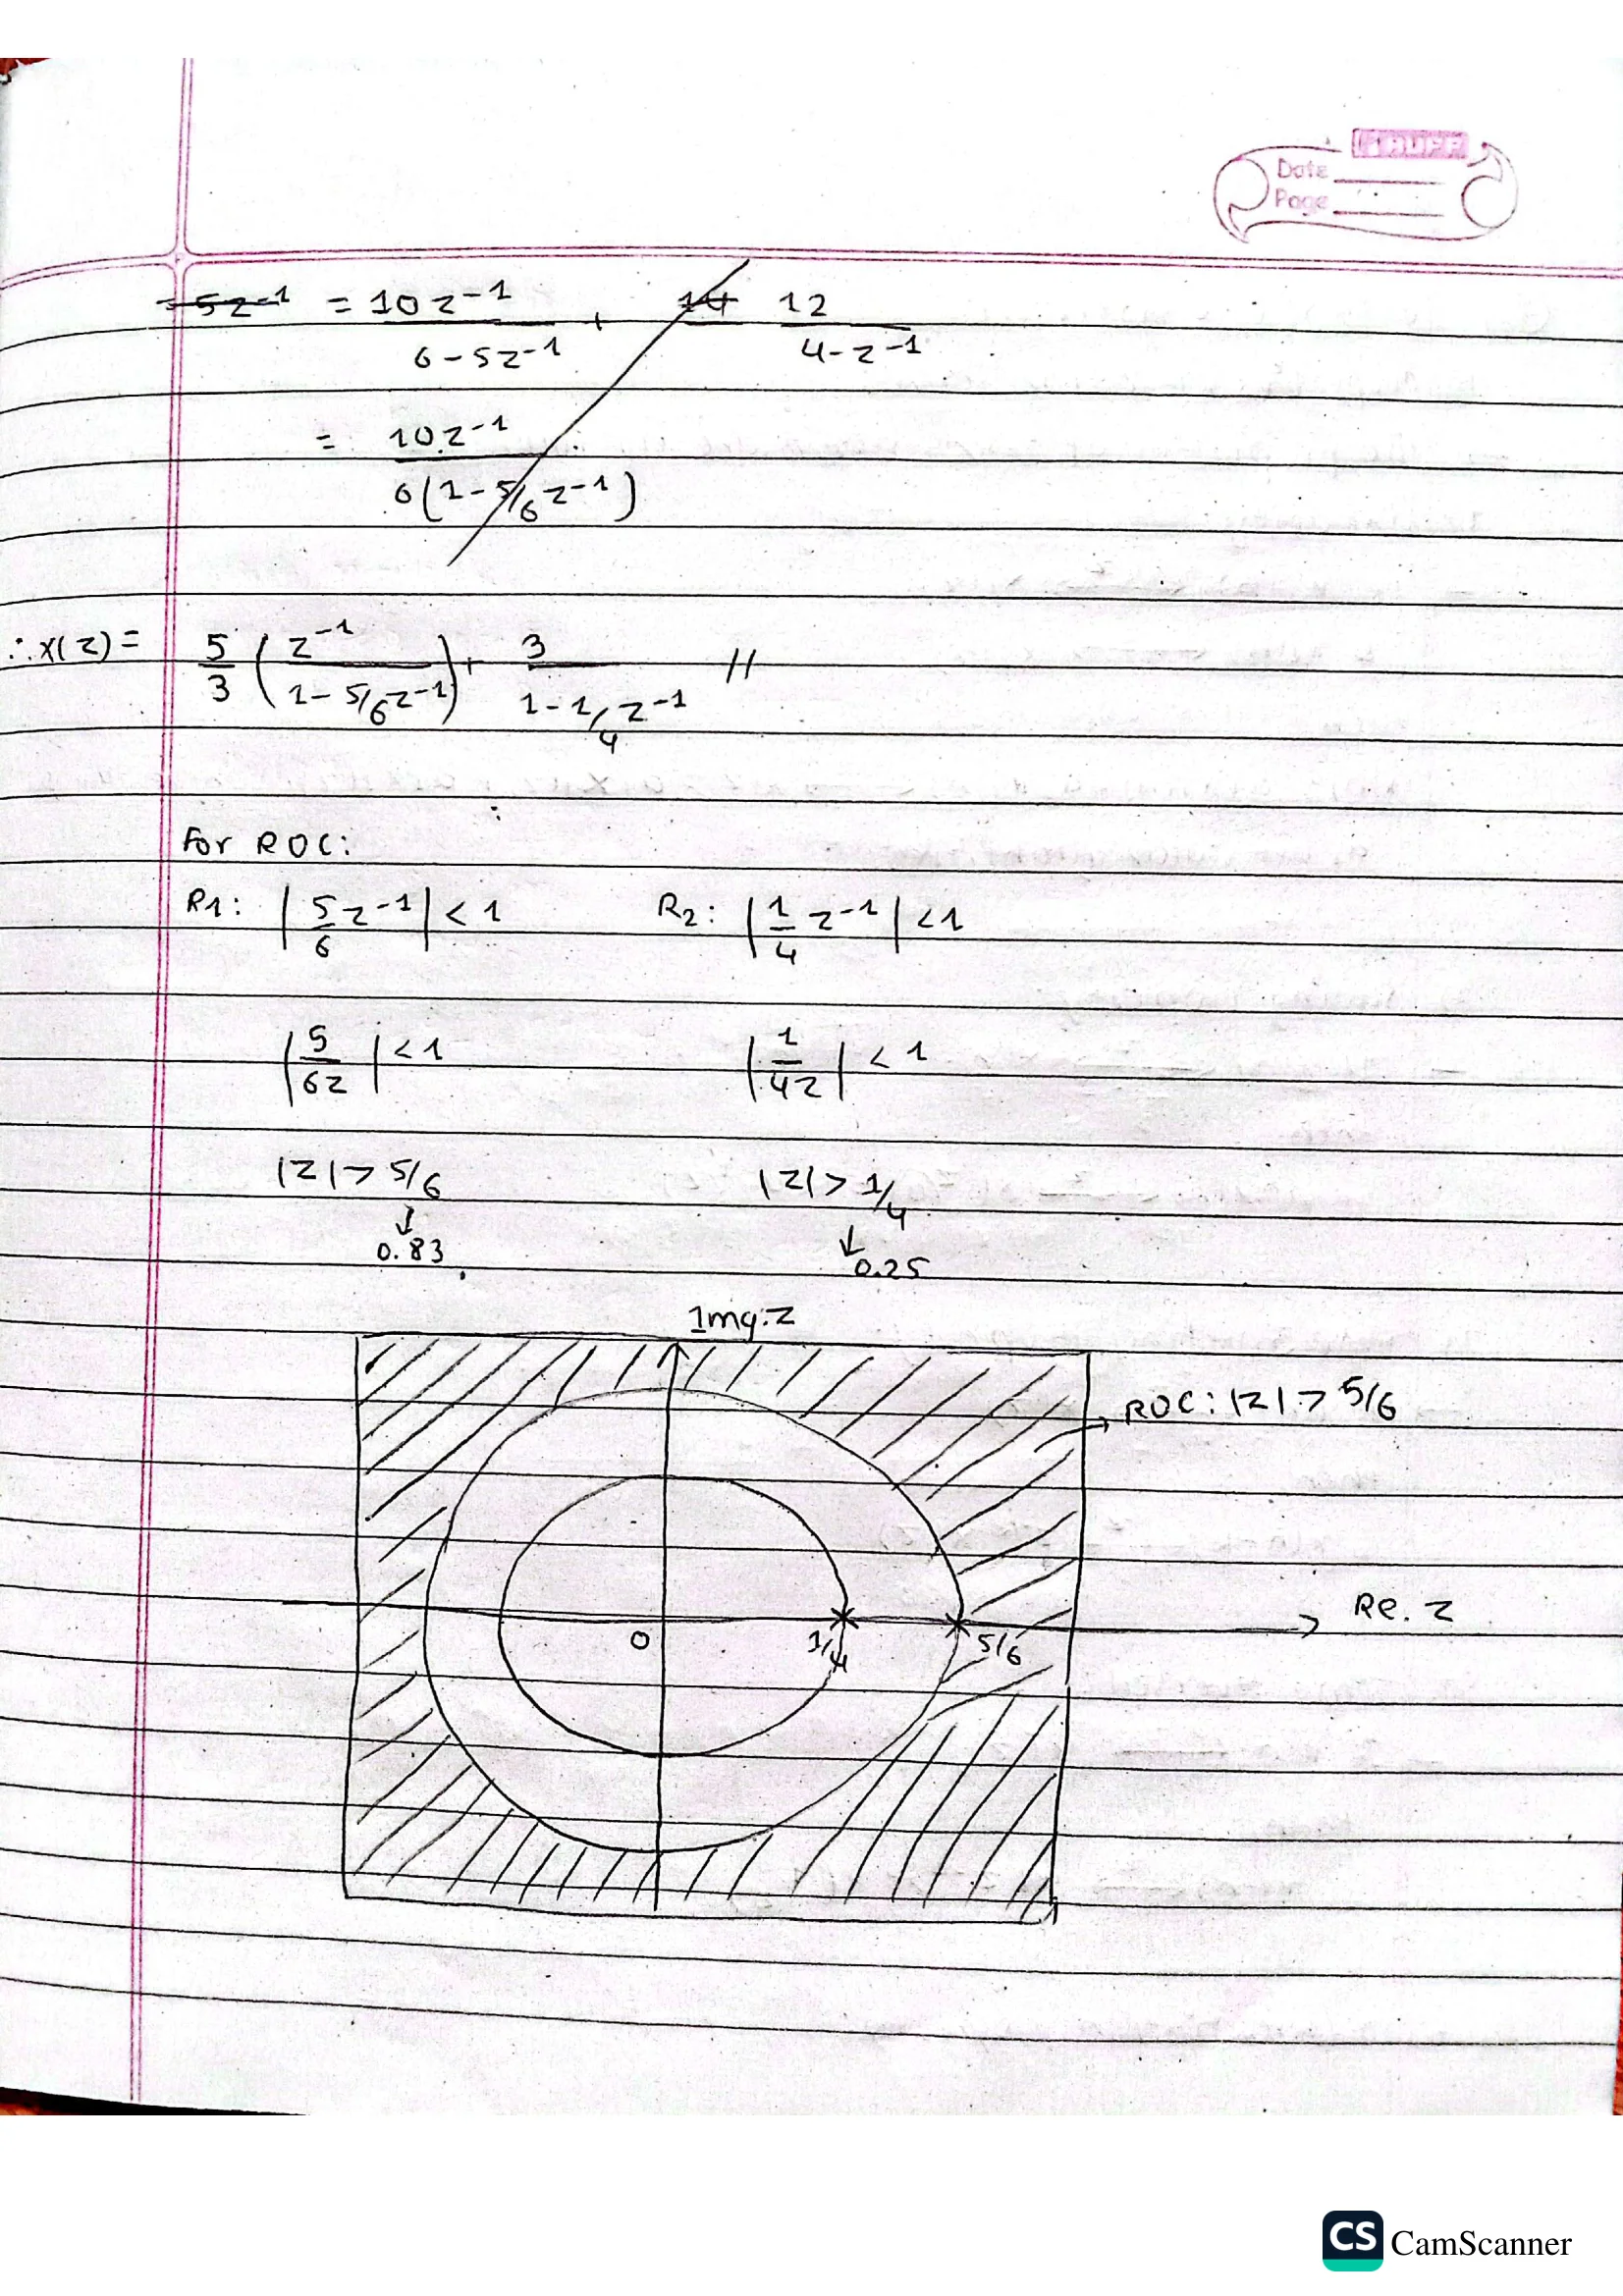 Date
Page
= 5z⁻¹ = 10z⁻¹/(6-5z⁻¹) + 14 12/(4-z⁻¹)
= 10z⁻¹/(6(1-5/6z⁻¹))
∴x(z) = 5/3 (z⁻¹/(1-5/6z⁻¹)) + 3/(1-1/4z⁻¹) //
For ROC:
R1: |5/6 z⁻¹| < 1 R2: |1/4 z⁻¹| < 1
|5/6z| < 1 |1/4z| < 1
|z| > 5/6 |z| > 1/4
↓ ↓
0.83 0.25
Img.z
ROC: |z| > 5/6
Re. z
0 1/4 5/6
CS CamScanner